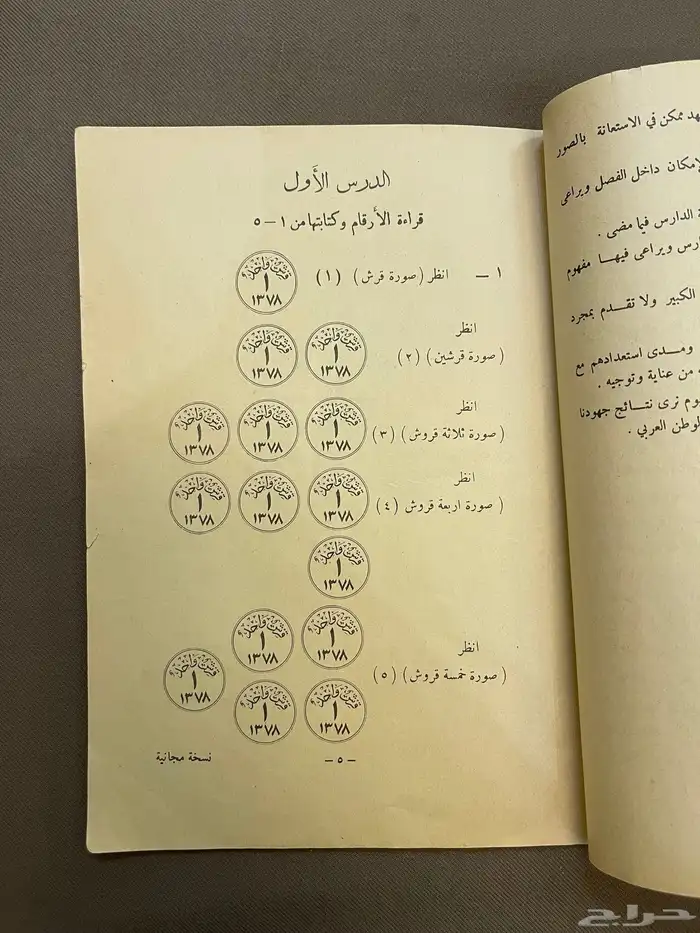 هد ممكن في الاستعانة بالصور
لإمكان داخل الفصل ويراعى
ة الدارس فيما مضى .
ارس ويراعى فيهـا مفهوم
الكبير ولا تقـدم بمجرد
ومـدى استعدادهم مع
من عناية وتوجيه .
وم نرى نتـائج جهودنا
لوطن العربي .
الدرس الأول
قراءة الأرقام وكتابتها من ١ – ٥
١ – انظر ( صورة قرش ) ( ١ )
قرش واحد
١
١٣٧٨
انظر
( صورة قرشين ) ( ٢ )
قرش واحد قرش واحد
١ ١
١٣٧٨ ١٣٧٨
انظر
( صورة ثلاثة قروش ) ( ٣ )
قرش واحد قرش واحد قرش واحد
١ ١ ١
١٣٧٨ ١٣٧٨ ١٣٧٨
انظر
( صورة اربعة قروش ) ( ٤ )
قرش واحد قرش واحد قرش واحد
١ ١ ١
١٣٧٨ ١٣٧٨ ١٣٧٨
قرش واحد
١
١٣٧٨
انظر
( صورة خمسة قروش ) ( ٥ )
قرش واحد قرش واحد
١ ١
١٣٧٨ ١٣٧٨
قرش واحد
١
١٣٧٨
قرش واحد قرش واحد
١ ١
١٣٧٨ ١٣٧٨
– ٥ –
نسخة مجانية
حراج